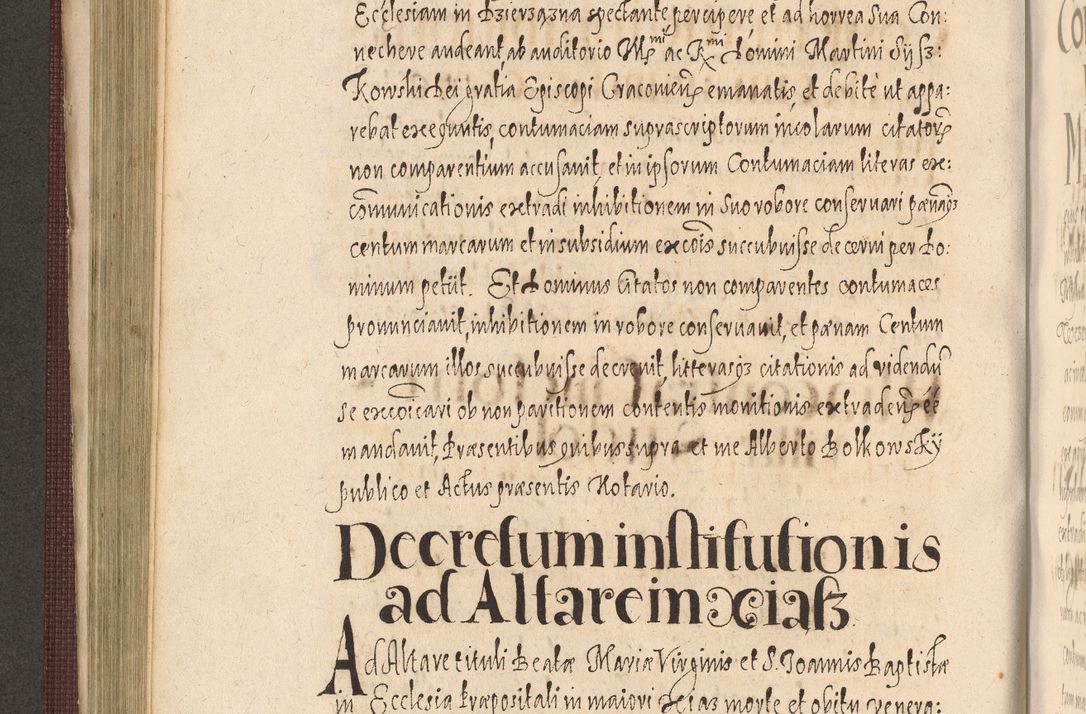 Ecclesiam in Dzierzązna spectante percipere et ad horrea sua Con:
nechere audeant, ab auditorio Illmi ac Rmi Domini Martini Syß:
Kowski Dei gratia Episcopi Cracovien emanatis, et debite ut appa:
rebat exequutis, contumaciam suprascriptorum incolarum citator
non comparentium accusavit, et in ipsorum Contumaciam literas ex:
cōmunicationis extradi inhibitionem in suo robore conservari pænāqȝ
centum marcarum et in subsidium excōis succubuisse decerni per Do:
minum petiit. Et Dominus Citatos non comparentes contumaces
pronunciavit, inhibitionem in robore conservavit, et pænam Centum
marcarum illos succubuisse decrevit, litterasqȝ citationis ad videndū
se excōicari ob non paritionem contentis monitionis extraden ēē
mandavit, Præsentibus quibus supra et me Alberto Bolkowsky
publico et Actus præsentis Notario.
Decretum institutionis
ad Altare in Xiaß
Ad Altare tituli Beatæ Mariæ Virginis et S. Joannis Baptistæ
in Ecclesia Præpositali in maiori Xias morte et obitu venera: